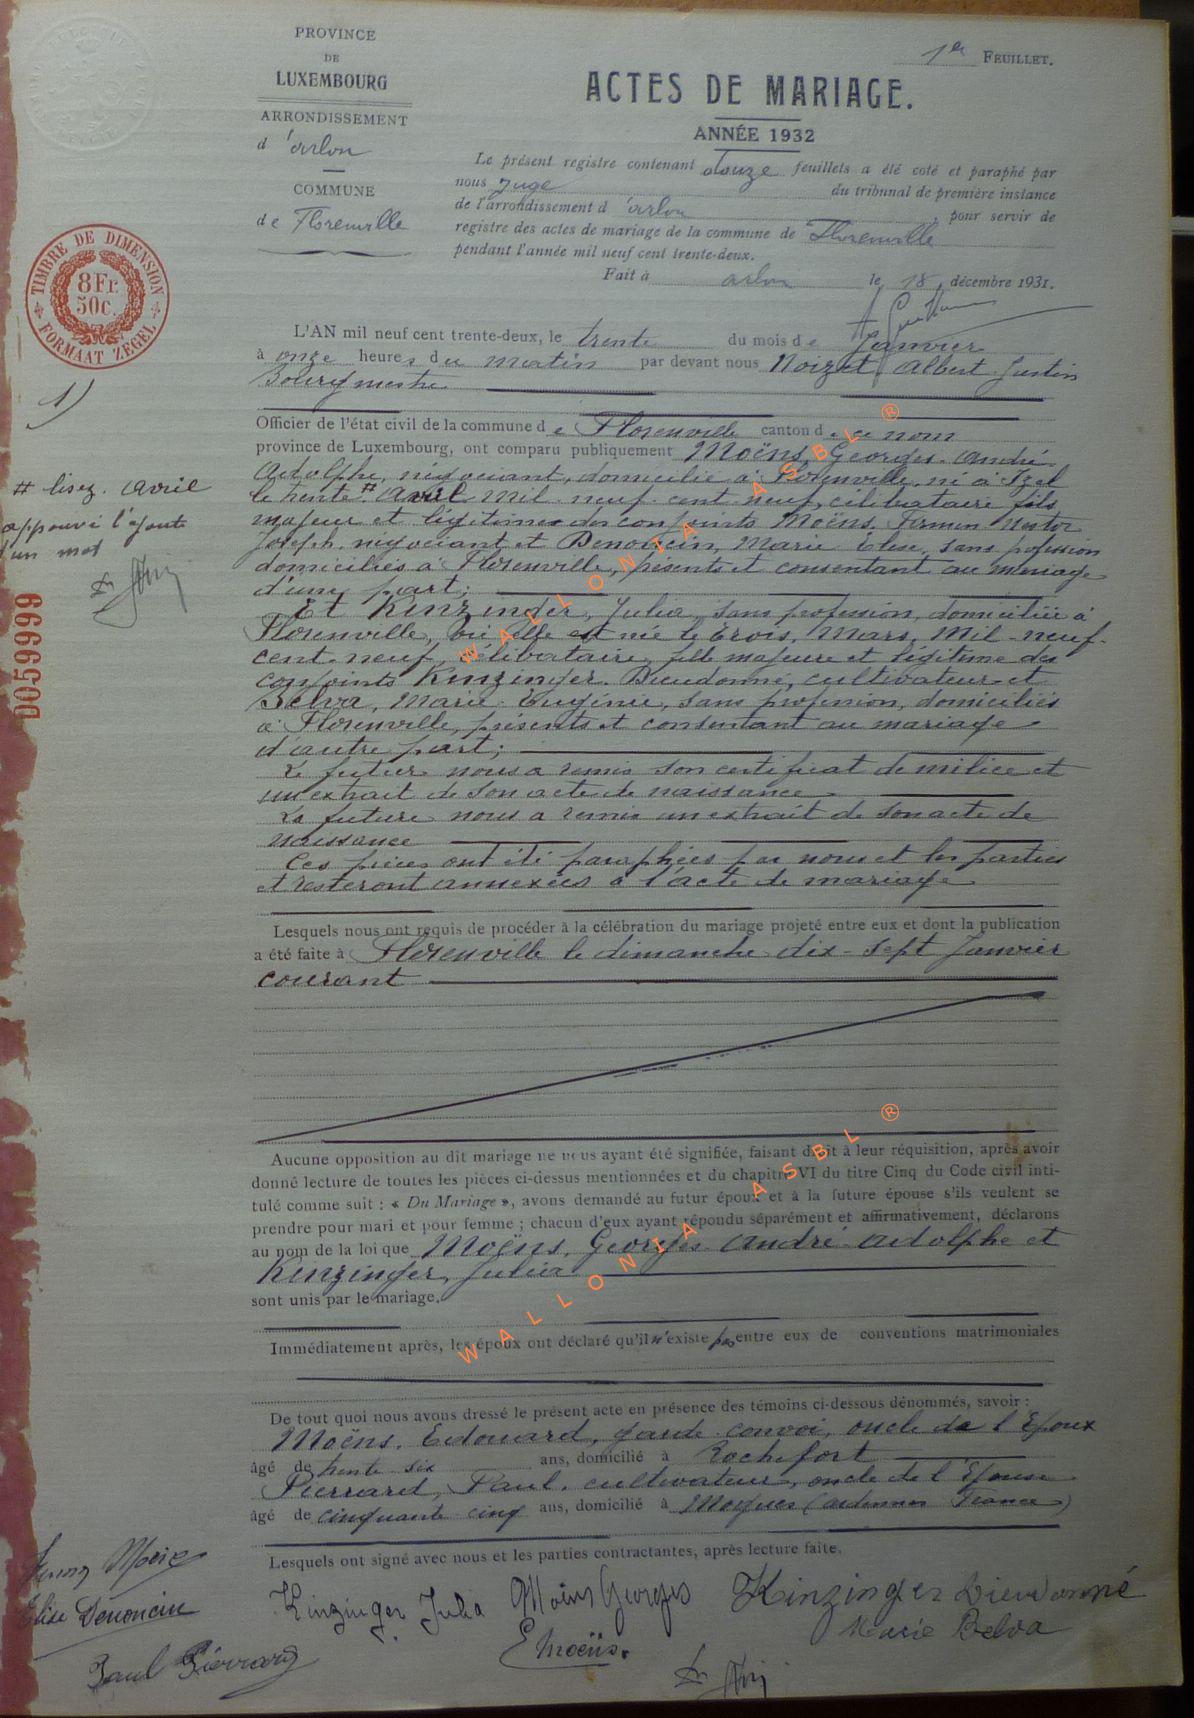 PROVINCE
DE
LUXEMBOURG
ARRONDISSEMENT
d'arlon
COMMUNE
de Florenville
1er FEUILLET.
ACTES DE MARIAGE.
ANNÉE 1932
Le présent registre contenant douze feuillets a été coté et paraphé par
nous Juge du tribunal de première instance
de l'arrondissement d'arlon, pour servir de
registre des actes de mariage de la commune de Florenville
pendant l'année mil neuf cent trente-deux.
Fait à arlon le 18 décembre 1931.
TIMBRE DE DIMENSION
8 Fr.
50c.
FORMAAT ZEGEL
L'AN mil neuf cent trente-deux, le trente du mois de Janvier
à onze heures du matin par devant nous Noizet Albert Justin
Bourgmestre
1)
Officier de l'état civil de la commune de Florenville canton de ce nom
province de Luxembourg, ont comparu publiquement Moëns, Georges André
Adolphe, négociant, domicilié à Florenville, né à Izel
le trente # avril mil neuf cent neuf, célibataire fils
majeur et légitime des conjoints Moëns, Firmin Nestor
Joseph, négociant et Denoncin, Marie Elise, sans profession
domiciliés à Florenville, présents et consentant au mariage
d'une part;
# lisez avril
approuvé l'ajoute
d'un mot
D059999
Et Kinzinger, Julia, sans profession, domiciliée à
Florenville, où elle est née le trois, Mars, Mil-neuf-
cent-neuf, célibataire, fille majeure et légitime des
conjoints Kinzinger, Dieudonné, cultivateur et
Belva, Marie Eugénie, sans profession, domiciliés
à Florenville, présents et consentant au mariage
d'autre part;
Le futur nous a remis son certificat de milice et
un extrait de son acte de naissance
La future nous a remis un extrait de son acte de
naissance
Ces pièces ont été paraphées par nous et les parties
et resteront annexées à l'acte de mariage
Lesquels nous ont requis de procéder à la célébration du mariage projeté entre eux et dont la publication
a été faite à Florenville le dimanche dix-sept Janvier
courant
Aucune opposition au dit mariage ne nous ayant été signifiée, faisant droit à leur réquisition, après avoir
donné lecture de toutes les pièces ci-dessus mentionnées et du chapitre VI du titre Cinq du Code civil inti-
tulé comme suit : « Du Mariage », avons demandé au futur époux et à la future épouse s'ils veulent se
prendre pour mari et pour femme ; chacun d'eux ayant répondu séparément et affirmativement, déclarons
au nom de la loi que Moëns, Georges André Adolphe et
Kinzinger, Julia
sont unis par le mariage.
Immédiatement après, les époux ont déclaré qu'il n'existe pas entre eux de conventions matrimoniales
De tout quoi nous avons dressé le présent acte en présence des témoins ci-dessous dénommés, savoir :
Moëns, Edouard, garde convoi, oncle de l'Epoux
âgé de trente six ans, domicilié à Rochefort
Pierrard, Paul, cultivateur, oncle de l'Epouse
âgé de cinquante cinq ans, domicilié à Mogues (ardennes France)
Lesquels ont signé avec nous et les parties contractantes, après lecture faite.
Kinzinger Julia Moëns Georges Kinzinger Dieudonné
Elise Denoncin
E Moëns.
Marie Belva
Paul Pierrard
WALLONIA ASBL ®
WALLONIA ASBL ®